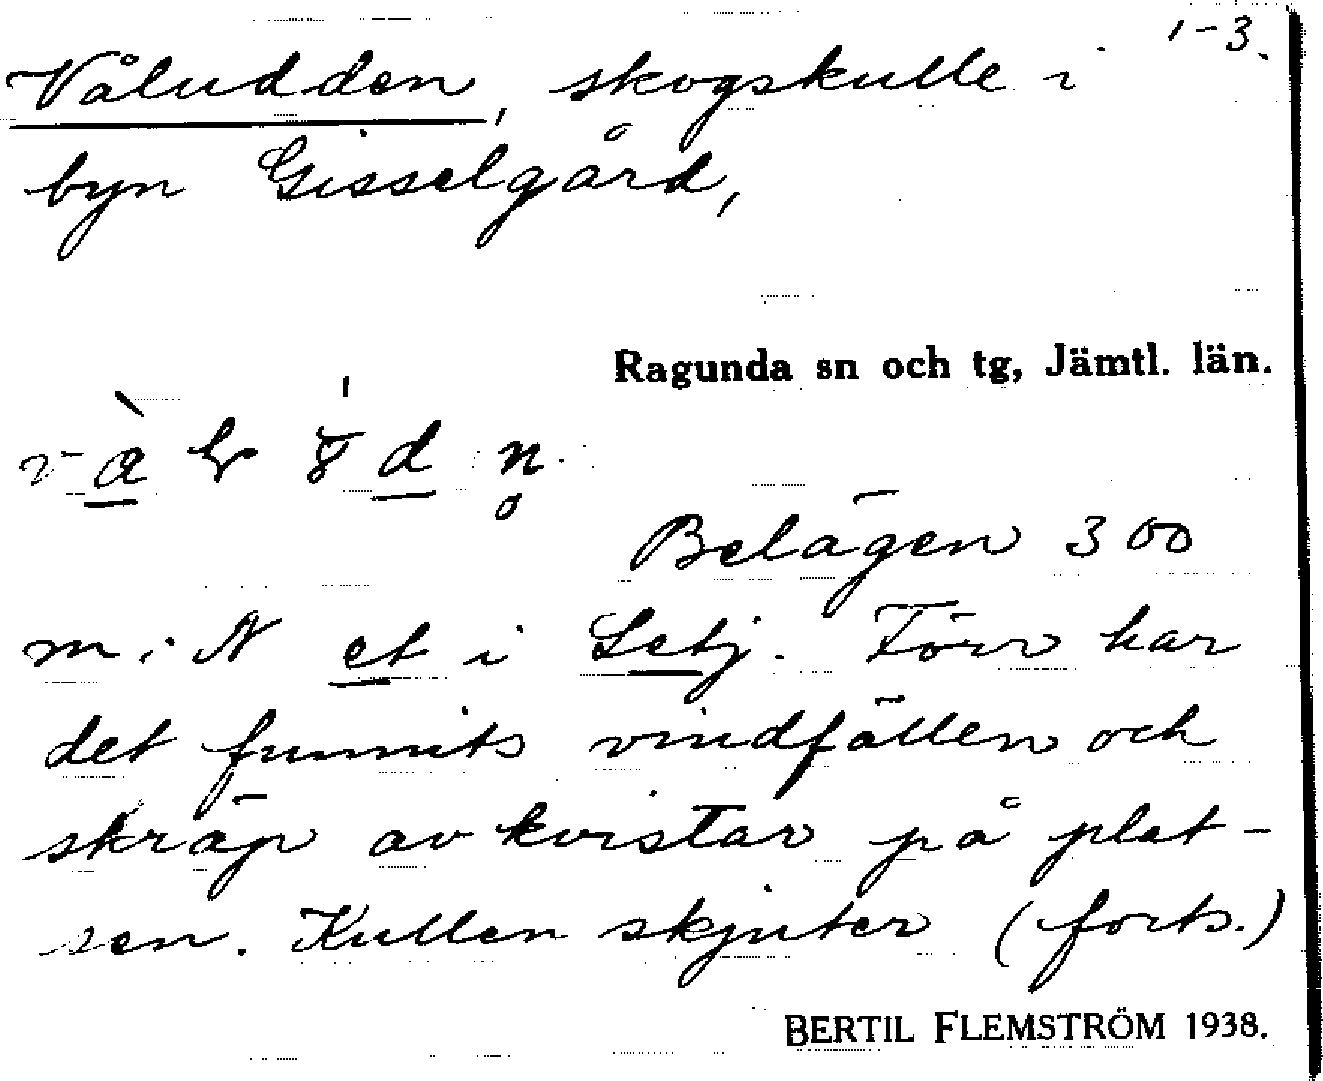 1-3.
Våludden, skogskulle i
byn Gisselgård,
Ragunda sn och tg, Jämtl. län.
Belägen 300
m i N et i Setj. Förr har
det funnits vindfällen och
skräp av kvistar på plat-
sen. Kullen skjuter (forts.)
BERTIL FLEMSTRÖM 1938.